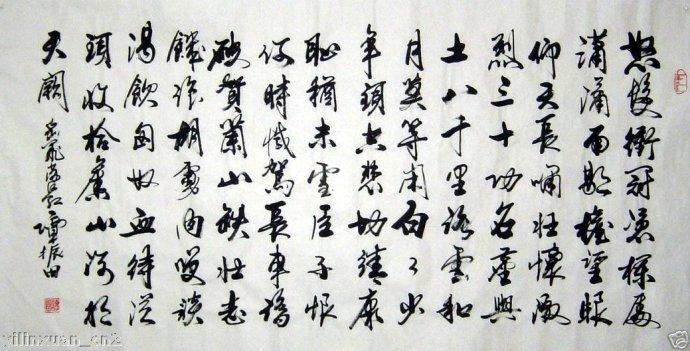 怒髮衝冠憑欄處
瀟瀟雨歇擡望眼
仰天長嘯壯懷激
烈三十功名塵與
土八千里路雲和
月莫等閑白了少
年頭空悲切靖康
恥猶未雪臣子恨
何時滅駕長車踏
破賀蘭山缺壯志
饑餐胡虜肉笑談
渴飲匈奴血待從
頭收拾舊山河朝
天闕 岳飛滿江紅 譚振田
yilinxuan_cn2